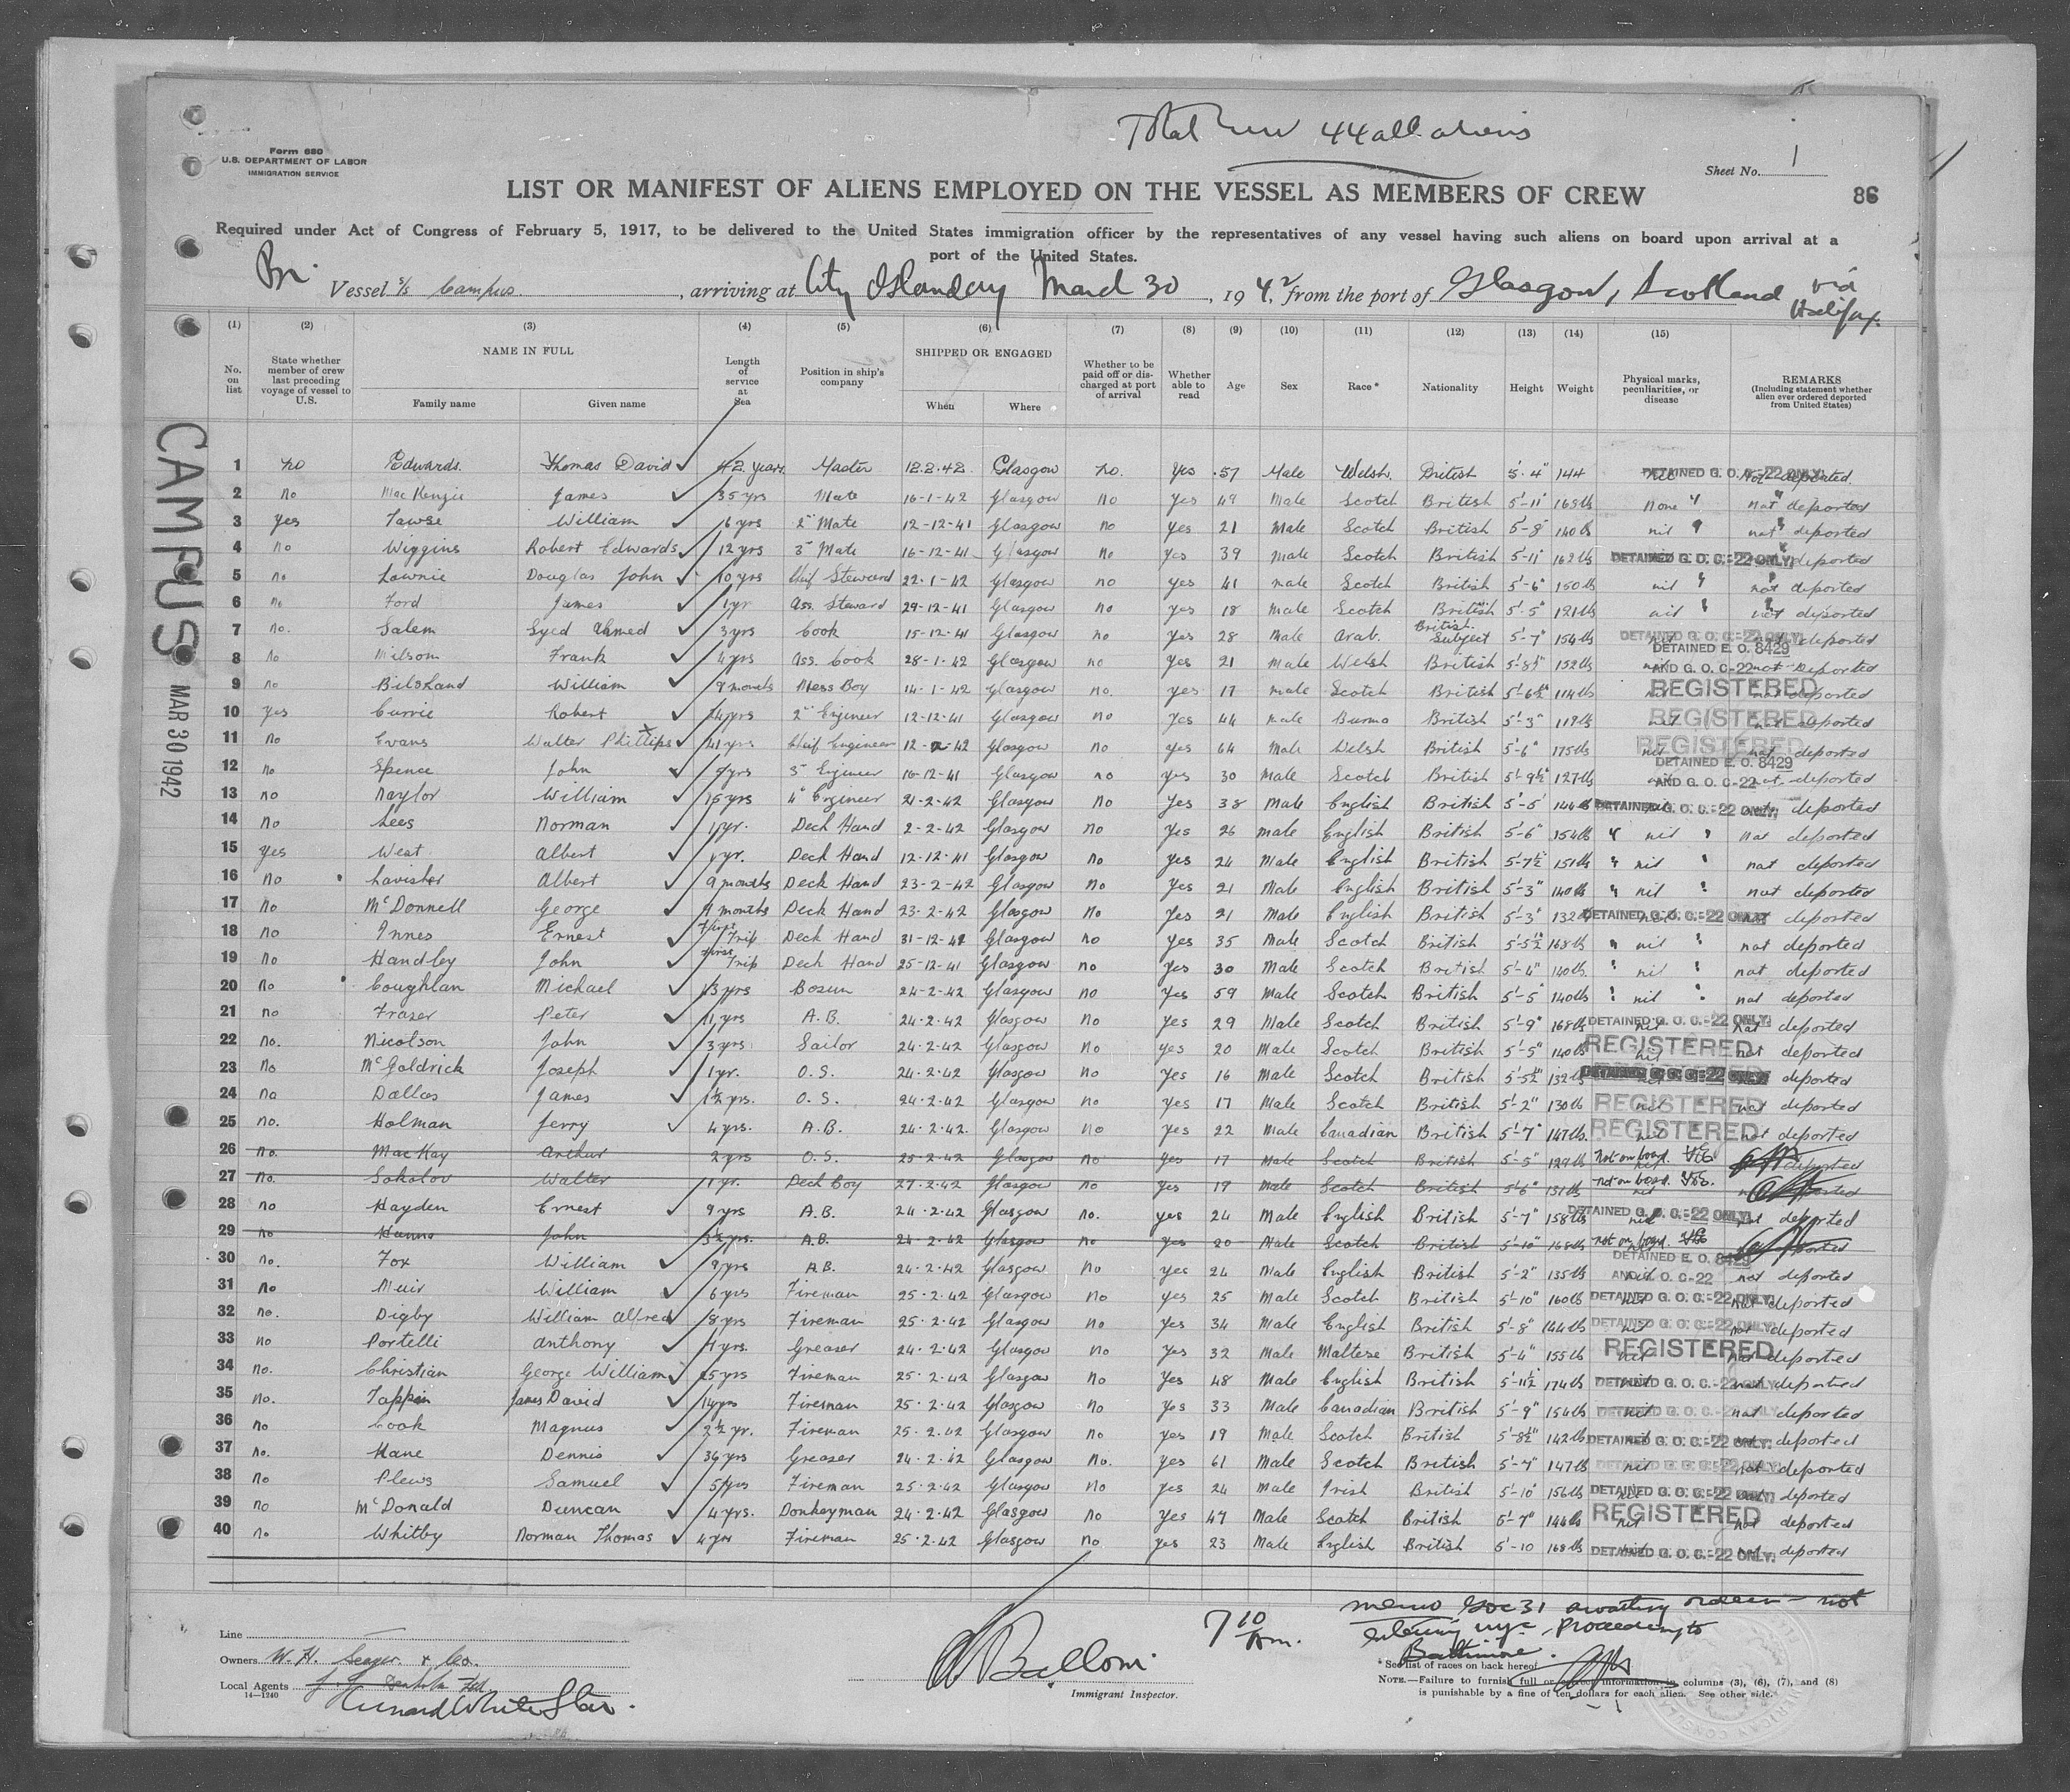 Total crew 44 all aliens
Form 680
U.S. DEPARTMENT OF LABOR
IMMIGRATION SERVICE
Sheet No. 1
LIST OR MANIFEST OF ALIENS EMPLOYED ON THE VESSEL AS MEMBERS OF CREW
86
Required under Act of Congress of February 5, 1917, to be delivered to the United States immigration officer by the representatives of any vessel having such aliens on board upon arrival at a
port of the United States.
Br. Vessel s/s Campus, arriving at City Island, March 30, 1942, from the port of Glasgow, Scotland via Halifax.
(1) (2) (3) (4) (5) (6) (7) (8) (9) (10) (11) (12) (13) (14) (15)
No. on list
State whether member of crew last preceding voyage of vessel to U.S.
NAME IN FULL
Family name
Given name
Length of service at Sea
Position in ship's company
SHIPPED OR ENGAGED
When
Where
Whether to be paid off or discharged at port of arrival
Whether able to read
Age
Sex
Race*
Nationality
Height
Weight
Physical marks, peculiarities, or disease
REMARKS
(Including statement whether alien ever ordered deported from United States)
CAMPUS MAR 30 1942
1 no Edwards. Thomas David 42 years Master 12.2.42 Glasgow no. Yes 57 Male Welsh. British 5'-4" 144 DETAINED G. O. C.-22 ONLY. not deported.
2 no MacKenzie James 35 yrs Mate 16-1-42 Glasgow no Yes 49 Male Scotch British 5'-11" 165lb None " not deported
3 Yes Tawse William 6 yrs 2nd Mate 12-12-41 Glasgow no Yes 21 Male Scotch British 5'-8 140lb nil " not deported
4 no Wiggins Robert Edwards 12 yrs 3rd Mate 16-12-41 Glasgow no Yes 39 Male Scotch British 5'-11" 162lb DETAINED G. O. C.-22 ONLY. deported
5 no Lownie Douglas John 10 yrs Chief Steward 22-1-42 Glasgow no yes 41 male Scotch British 5'-6" 150lb nil " not deported
6 no Ford James 1 yr Ass. Steward 29-12-41 Glasgow no yes 18 Male Scotch British 5'-5" 121lb nil " not deported
7 no. Salem Syed Ahmed 3 yrs Cook 15-12-41 Glasgow no Yes 28 Male Arab. British Subject 5'-7" 154lb DETAINED G. O. C.-22 ONLY. deported
8 no Milsom Frank 4 yrs Ass. Cook 28-1-42 Glasgow no yes 21 Male Welsh British 5'-8½" 152lb DETAINED E. O. 8429 AND G. O. C-22 not deported
9 no Bilsland William 9 months Mess Boy 14-1-42 Glasgow no. Yes 17 male Scotch British 5'-6½" 114lb REGISTERED not deported
10 Yes Currie Robert 24 yrs 2nd Engineer 12-12-41 Glasgow no Yes 44 male Burmo British 5'-3" 119lb REGISTERED not deported
11 no Evans Walter Phillips 41 yrs Chief Engineer 12-2-42 Glasgow no yes 64 Male Welsh British 5'-6" 175lb REGISTERED nil not deported
12 no Spence John 9 yrs 3rd Engineer 16-12-41 Glasgow no yes 30 Male Scotch British 5'-9½" 127lb DETAINED E. O. 8429 AND G. O. C-22 not deported
13 no Naylor William 15 yrs 4th Engineer 21-2-42 Glasgow no Yes 38 Male English British 5'-5" 144lb DETAINED G. O. C.-22 ONLY. deported
14 no Lees Norman 1 yr. Deck Hand 2-2-42 Glasgow no Yes 26 Male English British 5'-6" 154lb " nil " not deported
15 Yes West Albert 1 yr. Deck Hand 12-12-41 Glasgow no Yes 24 Male English British 5'-7½" 151lb " nil " not deported
16 no Lavisher Albert 9 months Deck Hand 23-2-42 Glasgow no Yes 21 Male English British 5'-3" 140lb " nil " not deported
17 no McDonnell George 9 months Deck Hand 23-2-42 Glasgow No Yes 21 Male English British 5'-3" 132lb DETAINED G. O. C.-22 ONLY. deported
18 no Innes Ernest First Trip Deck Hand 31-12-41 Glasgow no Yes 35 Male Scotch British 5'-5½" 168lb " nil " not deported
19 no Handley John First Trip Deck Hand 25-12-41 Glasgow no Yes 30 Male Scotch British 5'-4" 140lb. " nil " not deported
20 no Coughlan Michael 43 yrs Bosun 24-2-42 Glasgow no Yes 59 Male Scotch British 5'-5" 140lb " nil " not deported
21 no Fraser Peter 11 yrs A.B. 24.2.42 Glasgow no Yes 29 Male Scotch British 5'-9" 168lb DETAINED G. O. C.-22 ONLY. nil not deported
22 no. Nicolson John 3 yrs Sailor 24.2.42 Glasgow No yes 20 Male Scotch British 5'-5" 140lb REGISTERED nil not deported
23 no McGoldrick Joseph 1 yr. O.S. 24.2.42 Glasgow no Yes 16 Male Scotch British 5'-5½" 132lb DETAINED G. O. C.-22 ONLY. deported
24 no Dallas James 1½ yrs. O.S. 24.2.42 Glasgow no Yes 17 Male Scotch British 5'-2" 130lb REGISTERED nil not deported
25 no. Holman Jerry 4 yrs. A.B. 24.2.42. Glasgow no Yes 22 Male Canadian British 5'-7" 147lb. REGISTERED nil not deported
26 no. MacKay Arthur 2 yrs O.S. 25-2-42 Glasgow no Yes 17 Male Scotch British 5'-5" 129lb Not on board. deported
27 no. Sokolov Walter 1 yr. Deck Boy 27-2-42 Glasgow No Yes 19 Male Scotch British 5'-6" 131lb not on board.
28 no Hayden Ernest 9 yrs A.B. 24.2.42 Glasgow no. yes 24 Male English British 5'-7" 158lb DETAINED G. O. C.-22 ONLY. nil not deported
29 no John 3½ yrs. A.B. 24.2.42 Glasgow no yes 20 Male Scotch British 5'-10" 168lb not on board.
30 no. Fox William 9 yrs A.B. 24.2.42 Glasgow No yes 24 Male English British 5'-2" 135lb DETAINED E. O. 8429 AND G. O. C-22 not deported
31 no Muir William 6 yrs Fireman 25.2.42 Glasgow no yes 25 Male Scotch British 5'-10" 160lb DETAINED G. O. C.-22 ONLY. not deported
32 no. Digby William Alfred 8 yrs Fireman 25.2.42 Glasgow no Yes 34 Male English British 5'-8" 144lb DETAINED G. O. C.-22 ONLY. not deported
33 no Portelli Anthony 7 yrs. Greaser 24.2.42 Glasgow no Yes 32 Male Maltese British 5'-4" 155lb REGISTERED nil not deported
34 no. Christian George William 25 yrs Fireman 25.2.42 Glasgow no Yes 48 Male English British 5'-11½ 174lb DETAINED G. O. C.-22 ONLY. not deported
35 no. Tappin James David 14 yrs Fireman 25.2.42 Glasgow no Yes 33 Male Canadian British 5'-9" 154lb DETAINED G. O. C.-22 ONLY. nil not deported
36 no Cook Magnus 2½ yr. Fireman 25.2.42 Glasgow no yes 19 Male Scotch British 5'-8½" 142lb DETAINED G. O. C.-22 ONLY. deported
37 no. Kane Dennis 36 yrs Greaser 24.2.42 Glasgow No. yes 61 Male Scotch British 5'-7" 147lb DETAINED G. O. C.-22 ONLY. nil not deported
38 no Plews Samuel 5 yrs Fireman 25.2.42 Glasgow No Yes 24 Male Irish British 5'-10" 156lb DETAINED G. O. C.-22 ONLY. deported
39 no McDonald Duncan 4 yrs. Donkeyman 24.2.42 Glasgow no Yes 47 Male Scotch British 5'-7" 144lb REGISTERED nil not deported
40 no Whitby Norman Thomas 4 yrs Fireman 25.2.42 Glasgow no yes 23 Male English British 5'-10 168lb DETAINED G. O. C.-22 ONLY. deported
Line
Owners W. H. Seager & Co.
Local Agents
14—1240
Cunard White Star.
Immigrant Inspector.
7 10 am.
memo GOC 31 awaiting orders - not
entering nyc, Proceeding to
Baltimore.
* See list of races on back hereof.
NOTE.—Failure to furnish full or correct information in columns (3), (6), (7), and (8)
is punishable by a fine of ten dollars for each alien. See other side.